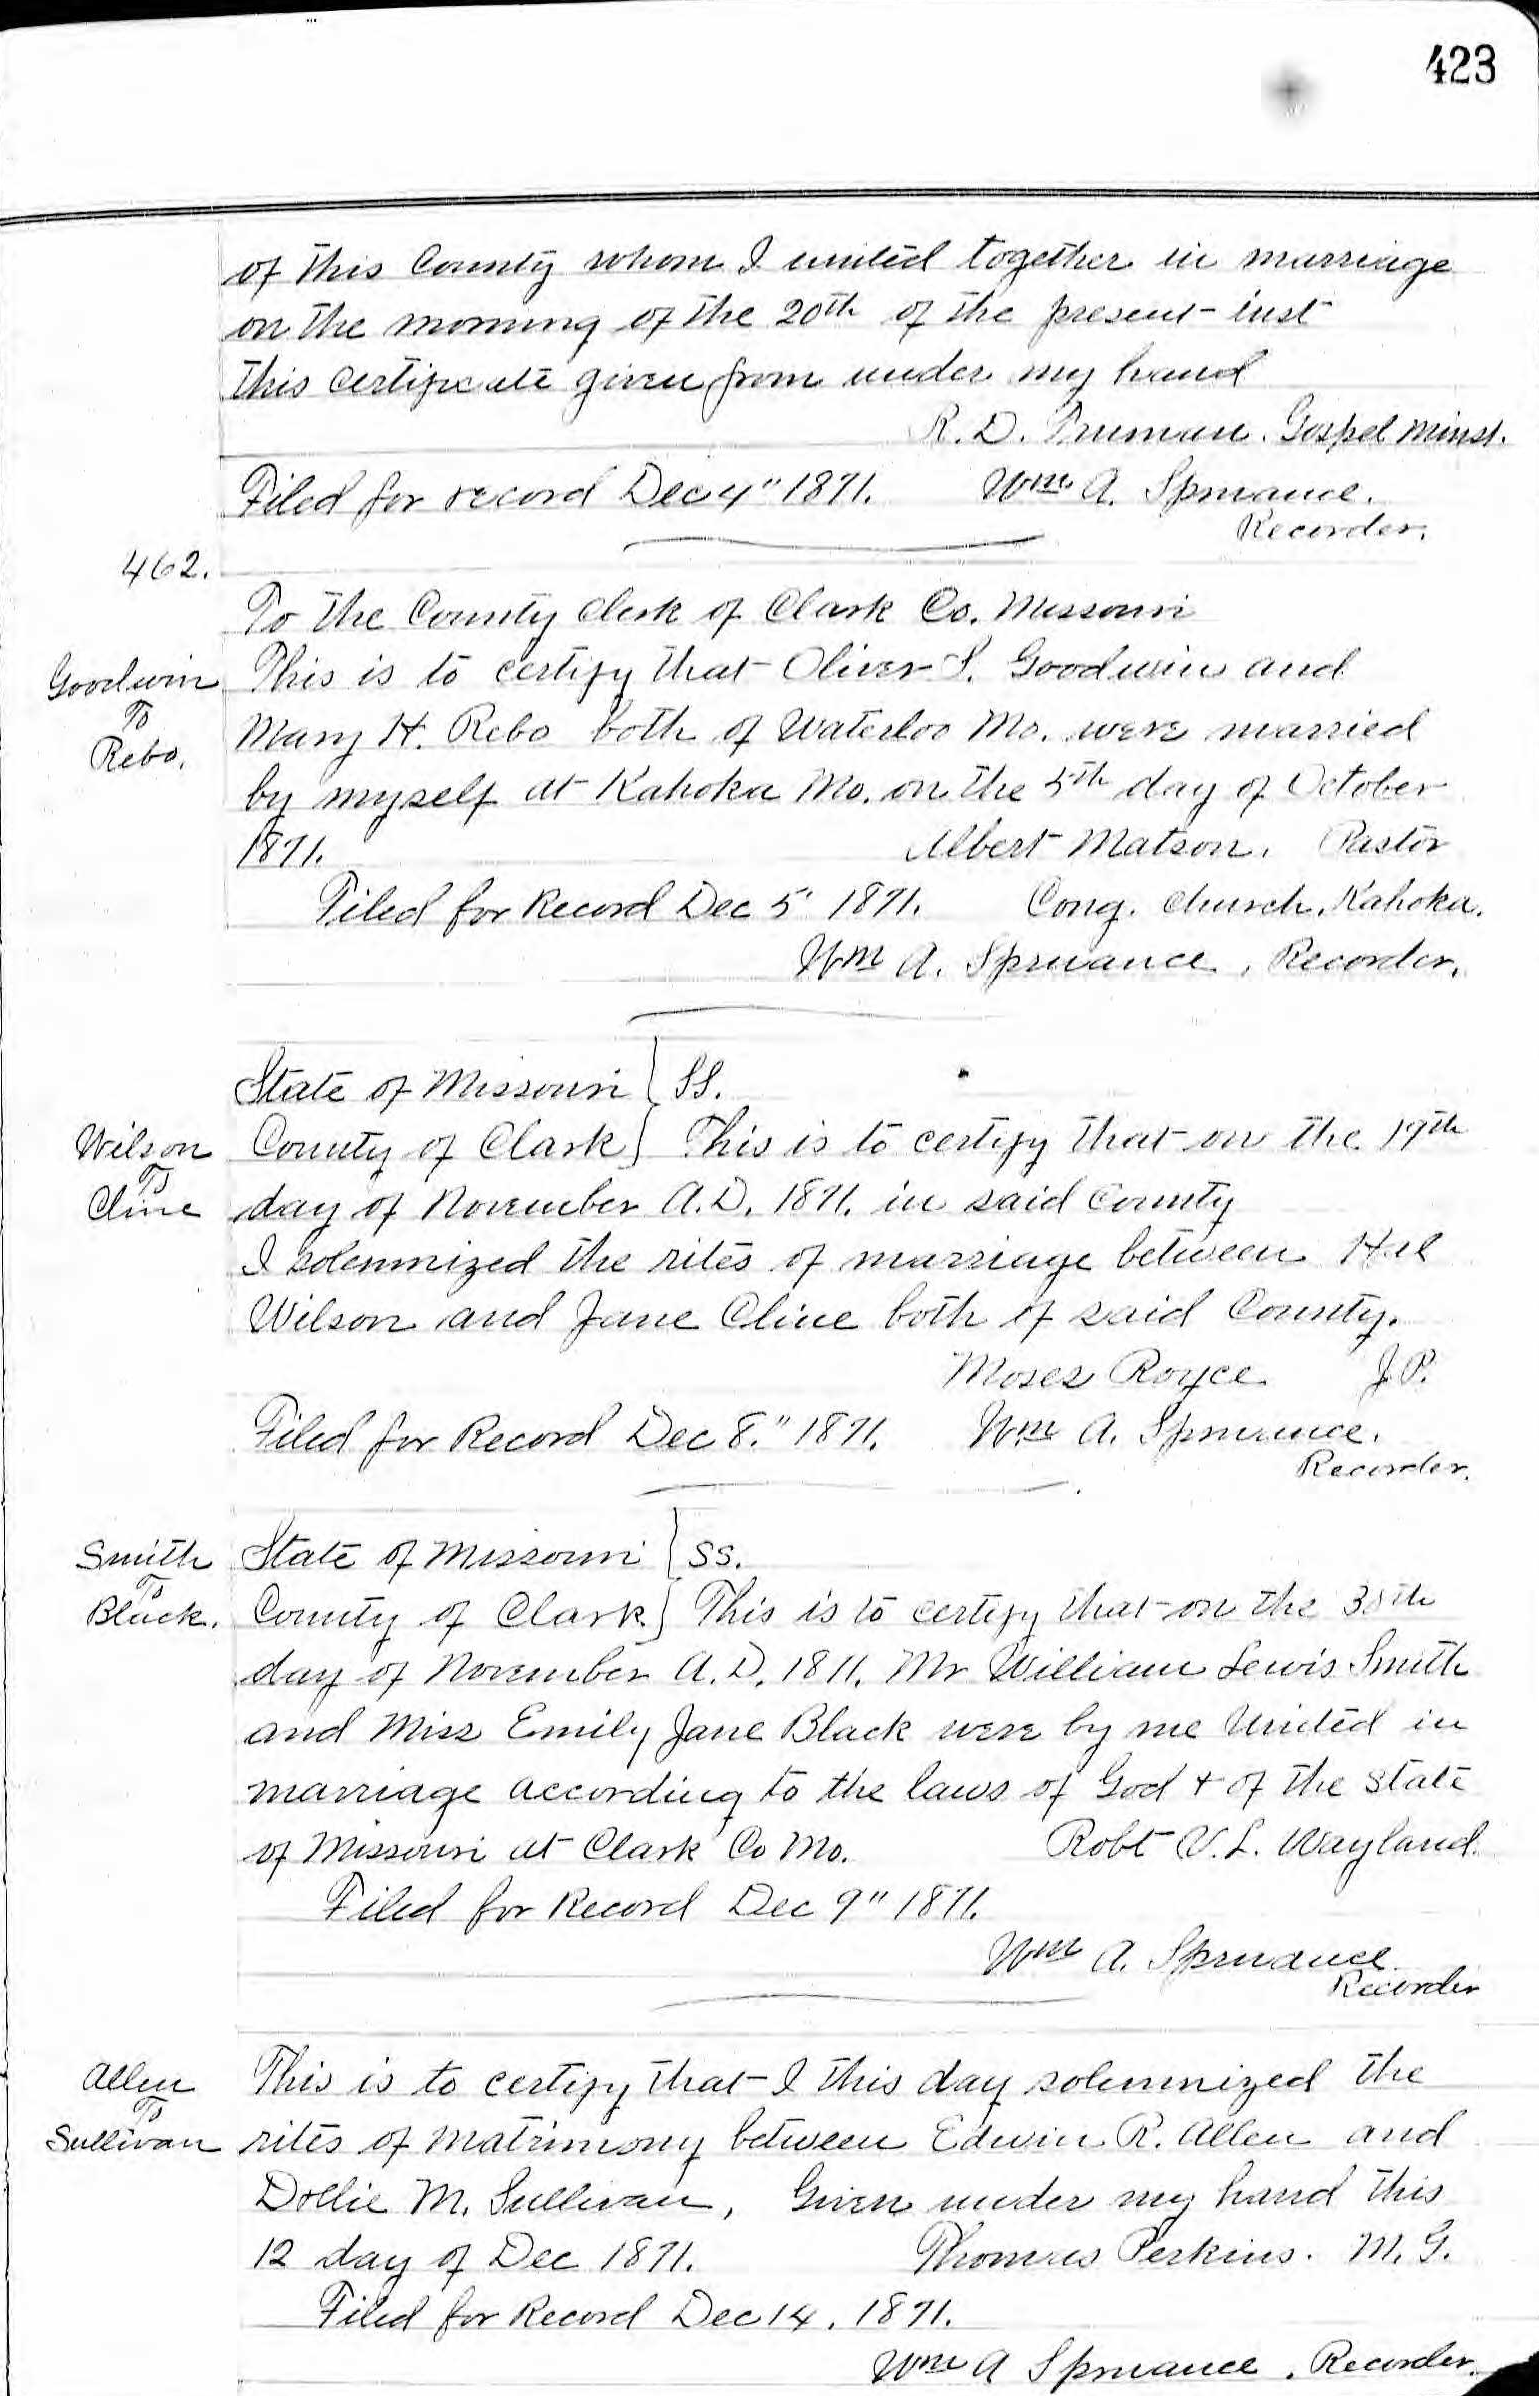 423
of this County whom I united together in marriage
on the morning of the 20th of the present inst
this certificate given from under my hand
R. D. Truman. Gospel Minst.
Filed for record Dec 4" 1871. Wm A. Spruance.
Recorder.
462.
To the County Clerk of Clark Co. Missouri
Goodwin This is to certify that Oliver S. Goodwin and
To
Rebo. Mary H. Rebo both of Waterloo Mo. were married
by myself at Kahoka Mo. on the 5th day of October
1871. Albert Matson. Pastor
Filed for Record Dec 5" 1871. Cong. Church, Kahoka.
Wm A. Spruance, Recorder.
State of Missouri } SS.
Wilson County of Clark } This is to certify that on the 19th
To
Cline day of November A.D. 1871. in said County
I solemnized the rites of marriage between
Wilson and Jane Cline both of said County.
Moses Royce J.P.
Filed for Record Dec 8." 1871. Wm A. Spruance.
Recorder.
Smith State of Missouri } SS.
To
Black. County of Clark } This is to certify that on the 30th
day of November A.D. 1871. Mr William Lewis Smith
and Miss Emily Jane Black were by me United in
marriage according to the laws of God + of the State
of Missouri at Clark Co Mo. Robt V. L. Wayland.
Filed for Record Dec 9" 1871.
Wm A. Spruance
Recorder
Allen This is to certify that I this day solemnized the
To
Sullivan rites of matrimony between Edwin R. Allen and
Dollie M. Sullivan, Given under my hand this
12 day of Dec 1871. Thomas Perkins. M. G.
Filed for Record Dec 14, 1871.
Wm A Spruance. Recorder.